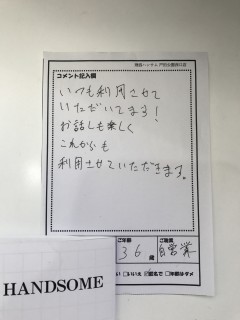 コメント記入欄
いつも利用させて
いただいてます!
お話しも楽しく
これからも
利用させていただきます。
ご年齢
36歳
ご職業
自営業
いいえ
匿名で
HANDSOME